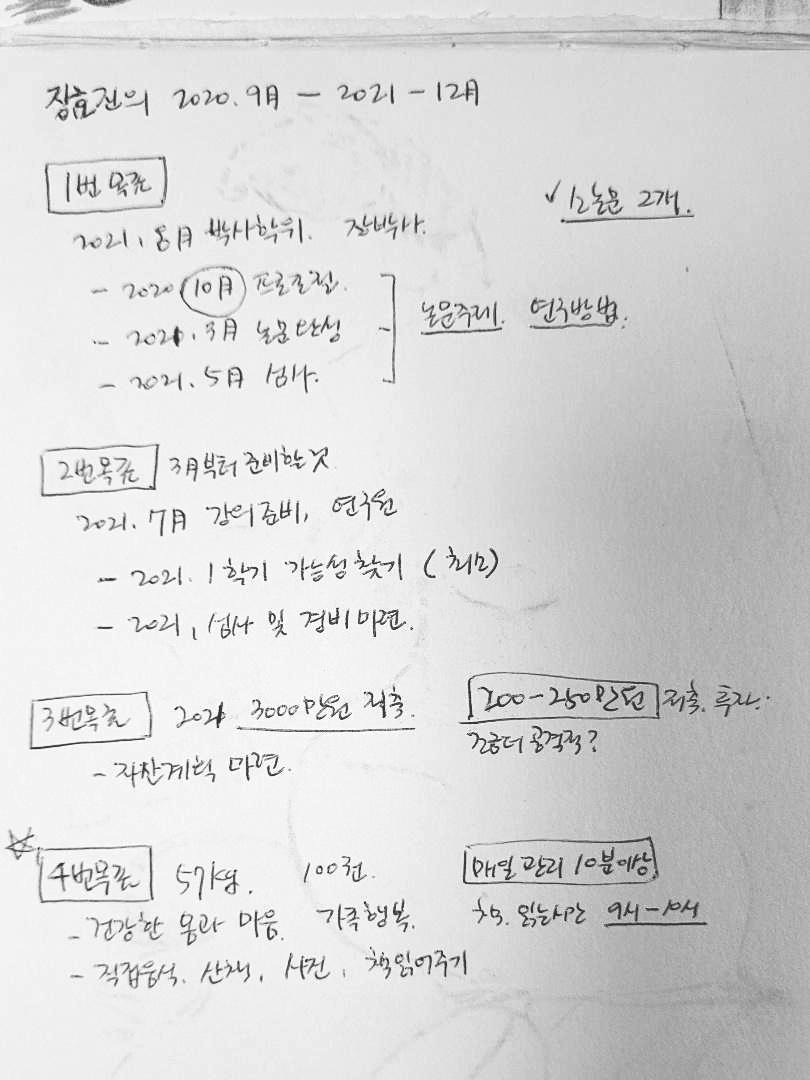 장효진의 2020. 9月 - 2021 - 12月
1번 목표
2021. 8月 박사학위. 장박사.
✓ 소논문 2개.
- 2020 10月 프로포절.
- 2021. 3月 논문완성
- 2021. 5月 심사.
논문주제. 연구방법.
2번목표 3月부터 준비할것
2021. 7月 강의준비, 연구원
- 2021. 1학기 가능성 찾기 (최모)
- 2021, 심사 및 경비마련.
3번목표 2021 3000만원 저축.
200-250만원 저축. 투자.
조금더 공격적?
- 자산계획 마련.
☆ 4번목표 57kg. 100권.
매일 관리 10분이상
- 건강한 몸과 마음. 가족행복.
책. 읽는시간 9시-10시
- 직접음식. 산책, 사진, 책읽어주기